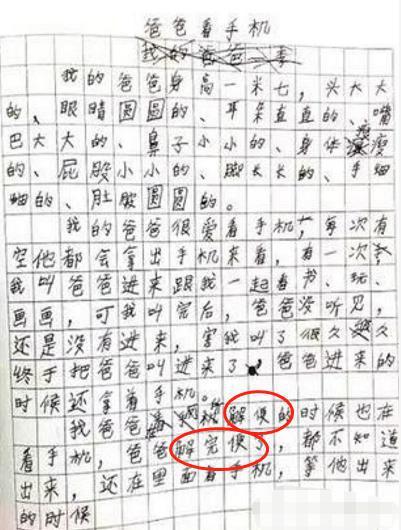 爸爸看手机
我的爸爸一事
我的爸爸身高一米七,头大大
的、眼睛圆圆的、耳朵直直的、嘴
巴大大的、鼻子小小的、身体瘦瘦
的、屁股小小的、脚长长的、手细
细的、肚股圆圆的。
我的爸爸很爱看手机,每次有
空他都会拿出手机来看,有一次,
我叫爸爸进来跟我一起看书、玩、
画画,可我叫完后,爸爸没听见,
还是没有进来,害我叫了很久
终于把爸爸叫进来了。爸爸进来的
时候还拿着手机。
我爸爸解便的时候也在
看手机,爸爸解完便了,都不知道
出来,还在里面看手机,等他出来
的时候